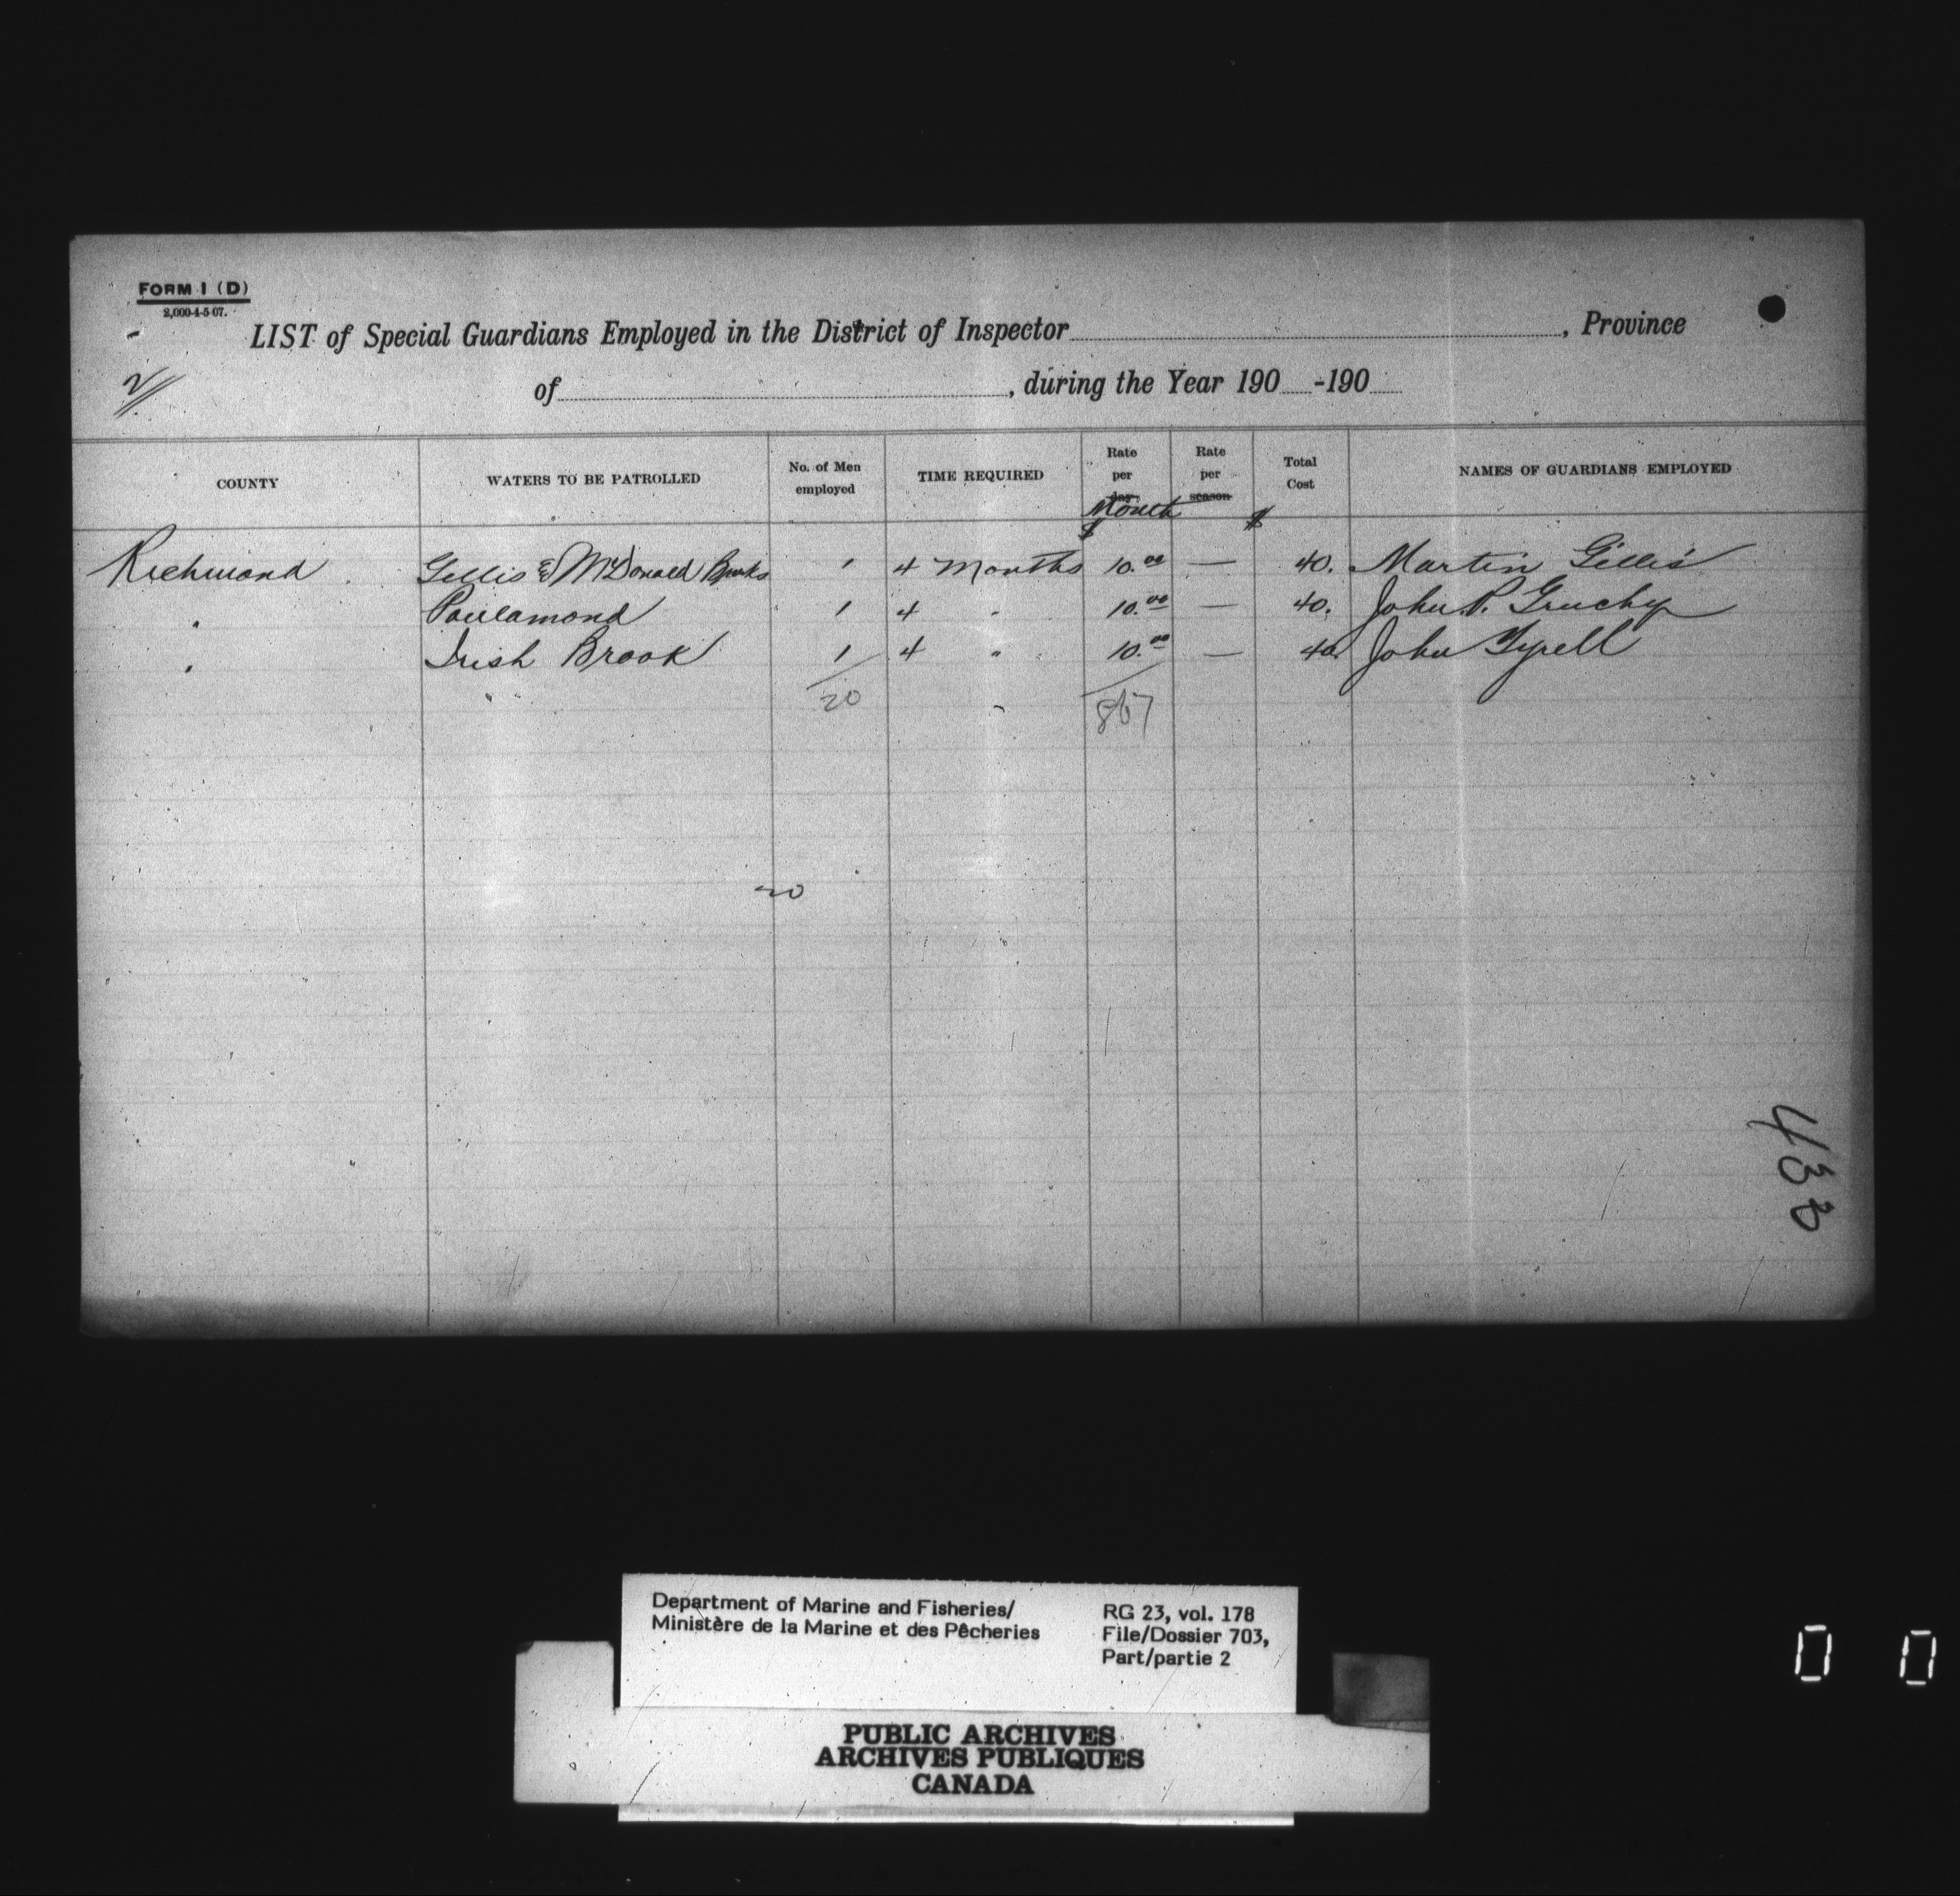 FORM 1 (D)
2,000-4-5-07.
LIST of Special Guardians Employed in the District of Inspector, Province
2//
of, during the Year 190 -190
COUNTY WATERS TO BE PATROLLED No. of Men employed TIME REQUIRED Rate per day Month Rate per season Total Cost NAMES OF GUARDIANS EMPLOYED
$ $
Richmond Gillis & McDonald Brooks 1 4 Months 10.00 — 40. Martin Gillis
" Poulamond 1 4 " 10.00 — 40. John P. Gruchy
" Irish Brook 1 4 " 10.00 — 40. John Tyrell
20 867
20
433
Department of Marine and Fisheries/ RG 23, vol. 178
Ministère de la Marine et des Pêcheries File/Dossier 703,
Part/partie 2
PUBLIC ARCHIVES
ARCHIVES PUBLIQUES
CANADA
0 0